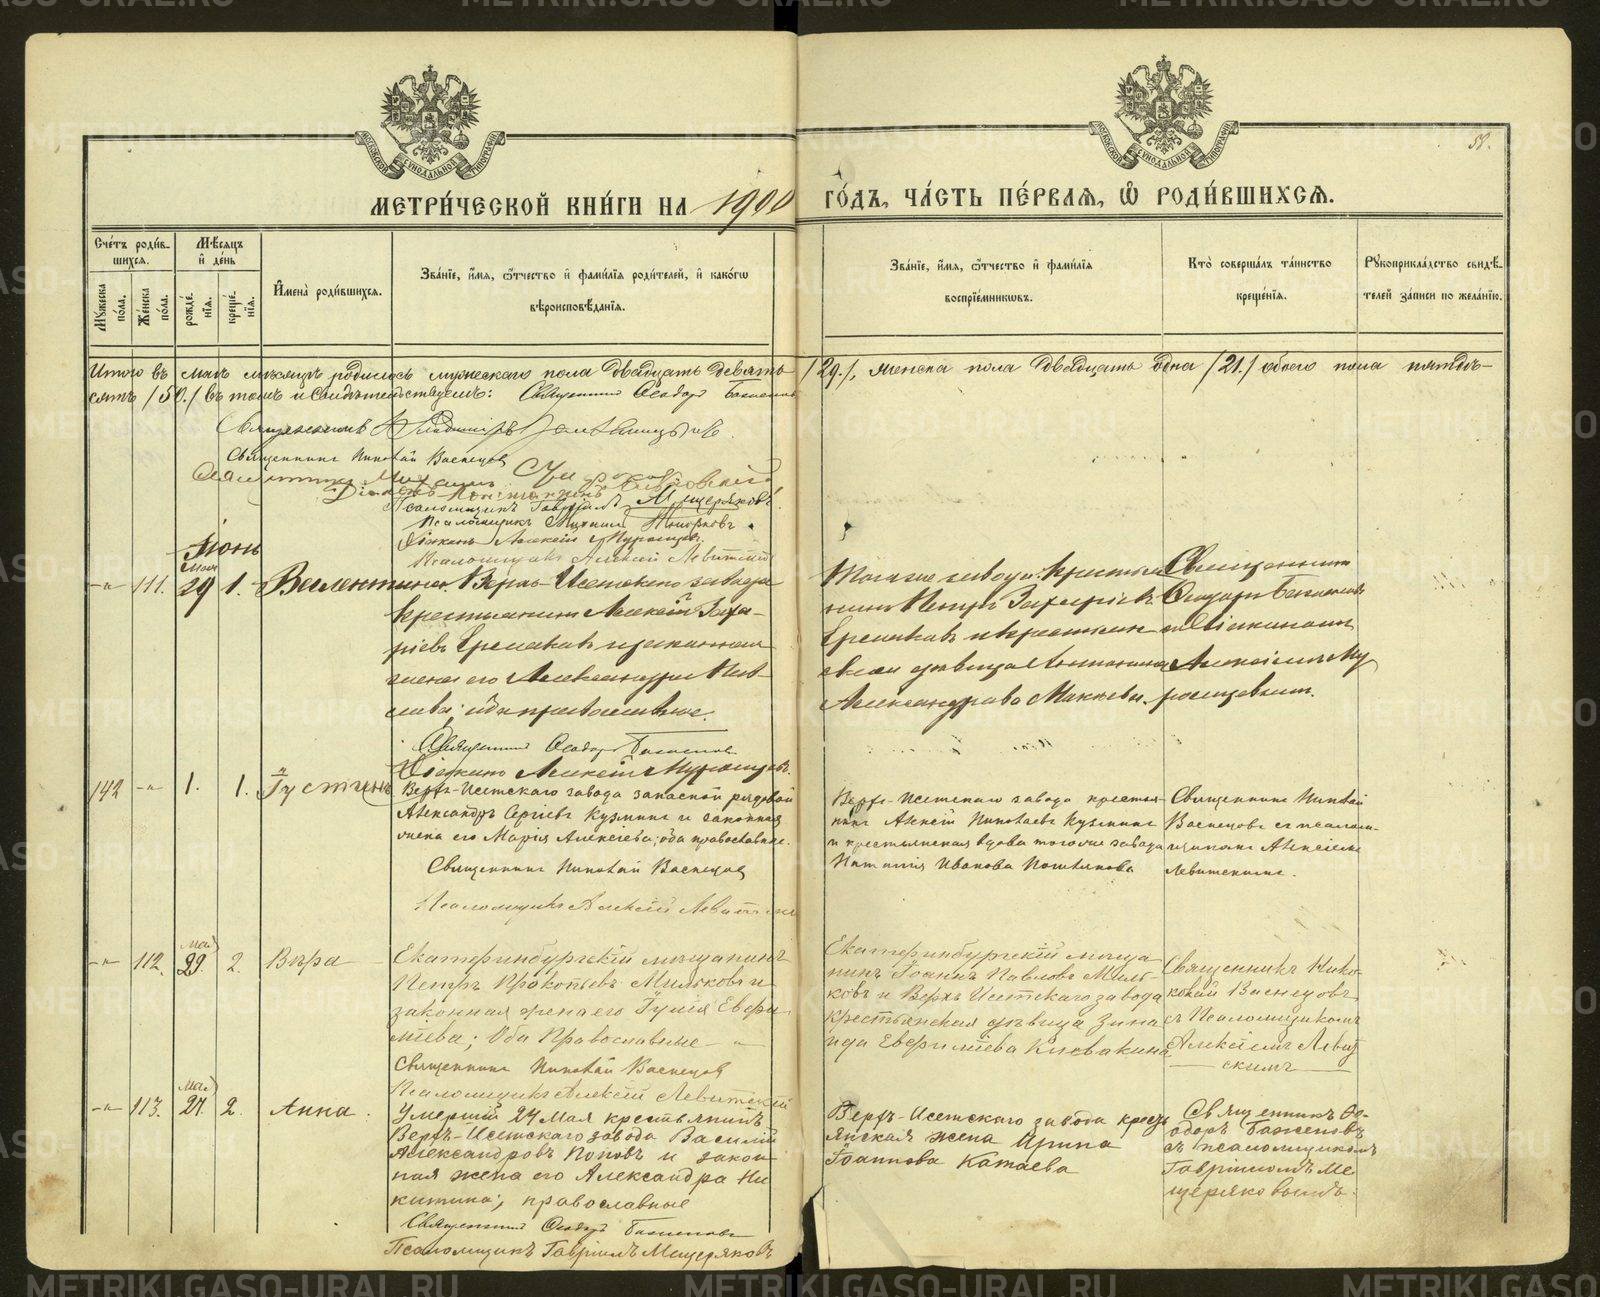 METRIKI.GASO-URAL.RU
58.
МЕТРИ́ЧЕСКОЙ КНИ́ГИ НА 1900 ГО́ДЪ, ЧА́СТЬ ПЕ́РВАЯ, Ѡ҆ РОДИ́ВШИХСЯ.
Сче́тъ роди́вшихся.
Мꙋ́жеска по́ла.
Же́нска по́ла.
Мѣ́сяцъ и҆ де́нь
рожде́нїя.
креще́нїя.
И҆мена̀ роди́вшихся.
Зва́нїе, и҆́мя, ѻ҆́тчество и҆ фами́лїя роди́телей, и҆ како́гѡ
вѣроисповѣ́данїя.
Зва́нїе, и҆́мя, ѻ҆́тчество и҆ фами́лїя
воспрїе́мникѡвъ.
Кто̀ соверша́лъ та́инство
креще́нїя.
Рꙋкоприкла́дство свидѣ́телей за́писи по жела́нїю.
Итого въ маѣ мѣсяцѣ родилось мужескаго пола двадцать девять /29./, женска пола двадцать одна /21./ обоего пола пятьде-
сятъ /50./ въ томъ и свидѣтельствуемъ: Священникъ Ѳеодоръ Баженовъ
Священникъ Владиміръ
Священникъ Николай Васнецовъ
Священникъ
Діаконъ Константинъ
Псаломщикъ Гавріилъ Мещеряковъ
Псаломщикъ
Діаконъ Алексій Муромцевъ
Псаломщикъ Алексій Левитскій
Іюнь
-"- 111. Мая 29 1. Валентина.
Верхъ-Исетскаго завода
крестьянинъ Алексій Заха-
ріевъ Ермаковъ и законная
жена его Александра
; оба православные.
Священникъ Ѳеодоръ Баженовъ
Діаконъ Алексій Муромцевъ.
Тогоже завода крестья-
нинъ Петръ Захаріевъ
Ермаковъ и крестьян-
ская дѣвица Антонина
Александрова Макѣева.
Священникъ
Ѳеодоръ Баженовъ
съ діакономъ
Алексіемъ Му-
ромцевымъ.
142 -"- 1. 1. Іустинъ
Верхъ-Исетскаго завода запасной рядовой
Александръ Сергіевъ Кузминъ и законная
жена его Марія Алексіева; оба православные.
Священникъ Николай Васнецовъ
Псаломщикъ Алексій Левитскій
Верхъ-Исетскаго завода крестья-
нинъ Алексій Николаевъ Кузминъ
и крестьянская вдова тогоже завода
Наталія Иванова
Священникъ Николай
Васнецовъ съ псалом-
щикомъ Алексіемъ
Левитскимъ.
-"- 112. Мая 29. 2. Вѣра
Екатеринбургскій мѣщанинъ
Петръ Прокопьевъ Мильковъ и
законная жена его Іулія Евфи-
міева; Оба Православные -"-
Священникъ Николай Васнецовъ
Псаломщикъ Алексій Левитскій
Екатеринбургскій мѣща-
нинъ Іоаннъ Павловъ Миль-
ковъ и Верхъ Исетскаго завода
крестьянская дѣвица Зина-
ида Евфиміева
Священникъ Нико-
лай Васнецовъ
съ Псаломщикомъ
Алексіемъ Левит-
скимъ
-"- 113. Мая 27. 2. Анна.
Умершій 24 Мая крестьянинъ
Верхъ-Исетскаго завода Василій
Александровъ Поповъ и закон-
ная жена его Александра Ни-
китина; православные
Священникъ Ѳеодоръ Баженовъ
Псаломщикъ Гавріилъ Мещеряковъ
Верхъ-Исетскаго завода кресть-
янская жена Ирина
Іоаннова Катаева
Священникъ Ѳе-
одоръ Баженовъ
съ псаломщикомъ
Гавріиломъ Ме-
щеряковымъ.